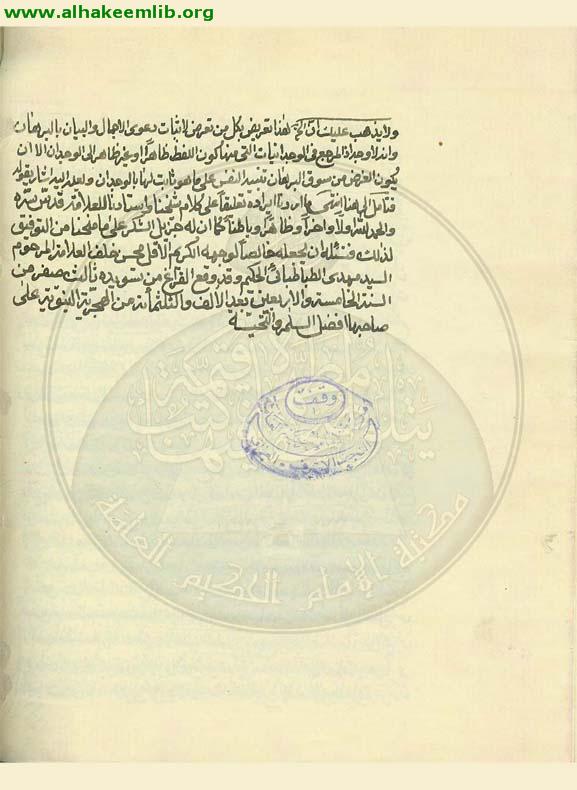 www.alhakeemlib.org
ولا يذهب عليك ان الخ هذا تعريض بكل من تعرض لاثبات دعوى الاجمال والبيان بالبرهان
وانه لا وجه اذ المرجع في الوجدانيات التي منها كون اللفظ ظاهرا او غير ظاهر الى الوجدان الا ان
يكون الغرض من سوق البرهان تنبيه النفس على ما هو ثابت لها بالوجدان ولعله اليه اشار بقوله
فتامل الى هنا انتهى ما اردنا ايراده تعليقا على كلام شيخنا واستادنا العلامة قدس سره
والحمد لله اولا واخرا وظاهرا وباطنا كما ان له جزيل الشكر على ما منحنا من التوفيق
لذلك ونسئله ان يجعله خالصا لوجهه الكريم الاقل محسن خلف العلامة المرحوم
السيد مهدي الطباطبائي الحكيم وقد وقع الفراغ من تسويده ثالث صفر من
السنة الخامسة والاربعين بعد الالف والثلثمائة من الهجرية النبوية على
صاحبها افضل السلم والتحية
وقف
مكتبة الإمام الحكيم العامة